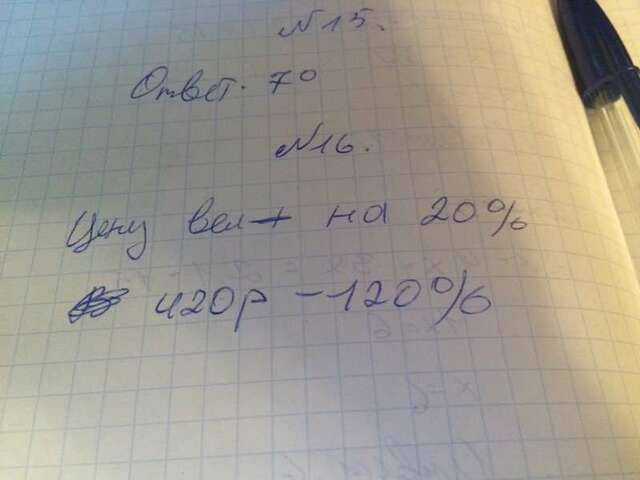 N15.
Ответ. 7°
N16.
Цену вел + на 20%
420р - 120%